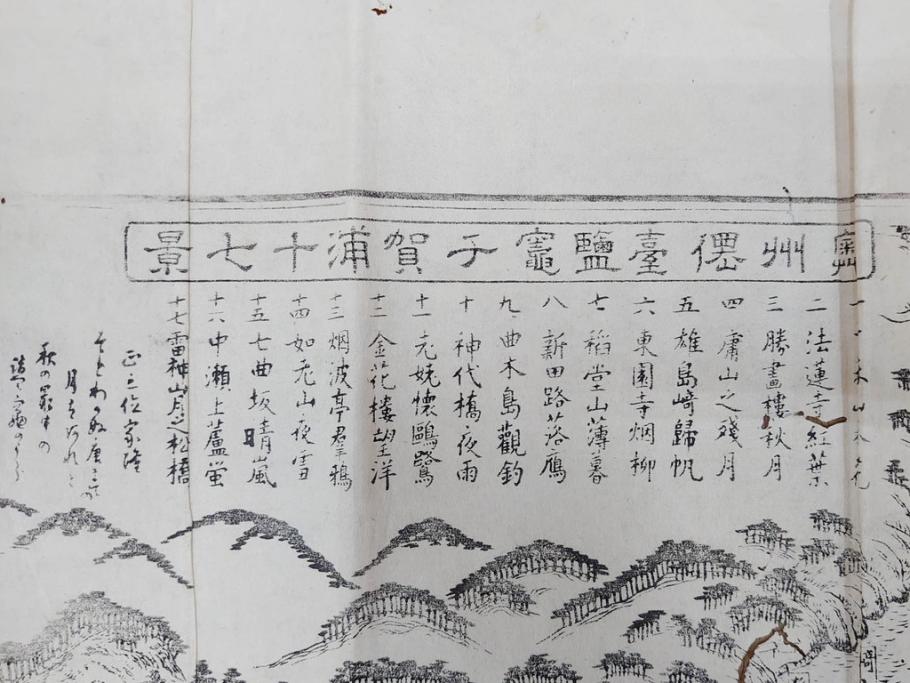 奥州僊臺鹽竈千賀浦十七景
一
二 法蓮寺紅葉
三 勝畫樓秋月
四 庸山之殘月
五 雄島﨑歸帆
六 東園寺烟柳
七 稻堂山薄暮
八 新田路落鴈
九 曲木島觀釣
十 神代橋夜雨
十一 老姥懷鷗鷺
十二 金花樓望洋
十三 烟波亭羣鴉
十四 如老山夜雪
十五 七曲坂晴嵐
十六 中瀬上蘆螢
十七 雷神山之松檎
正三位家隆
月も
秋の最中の